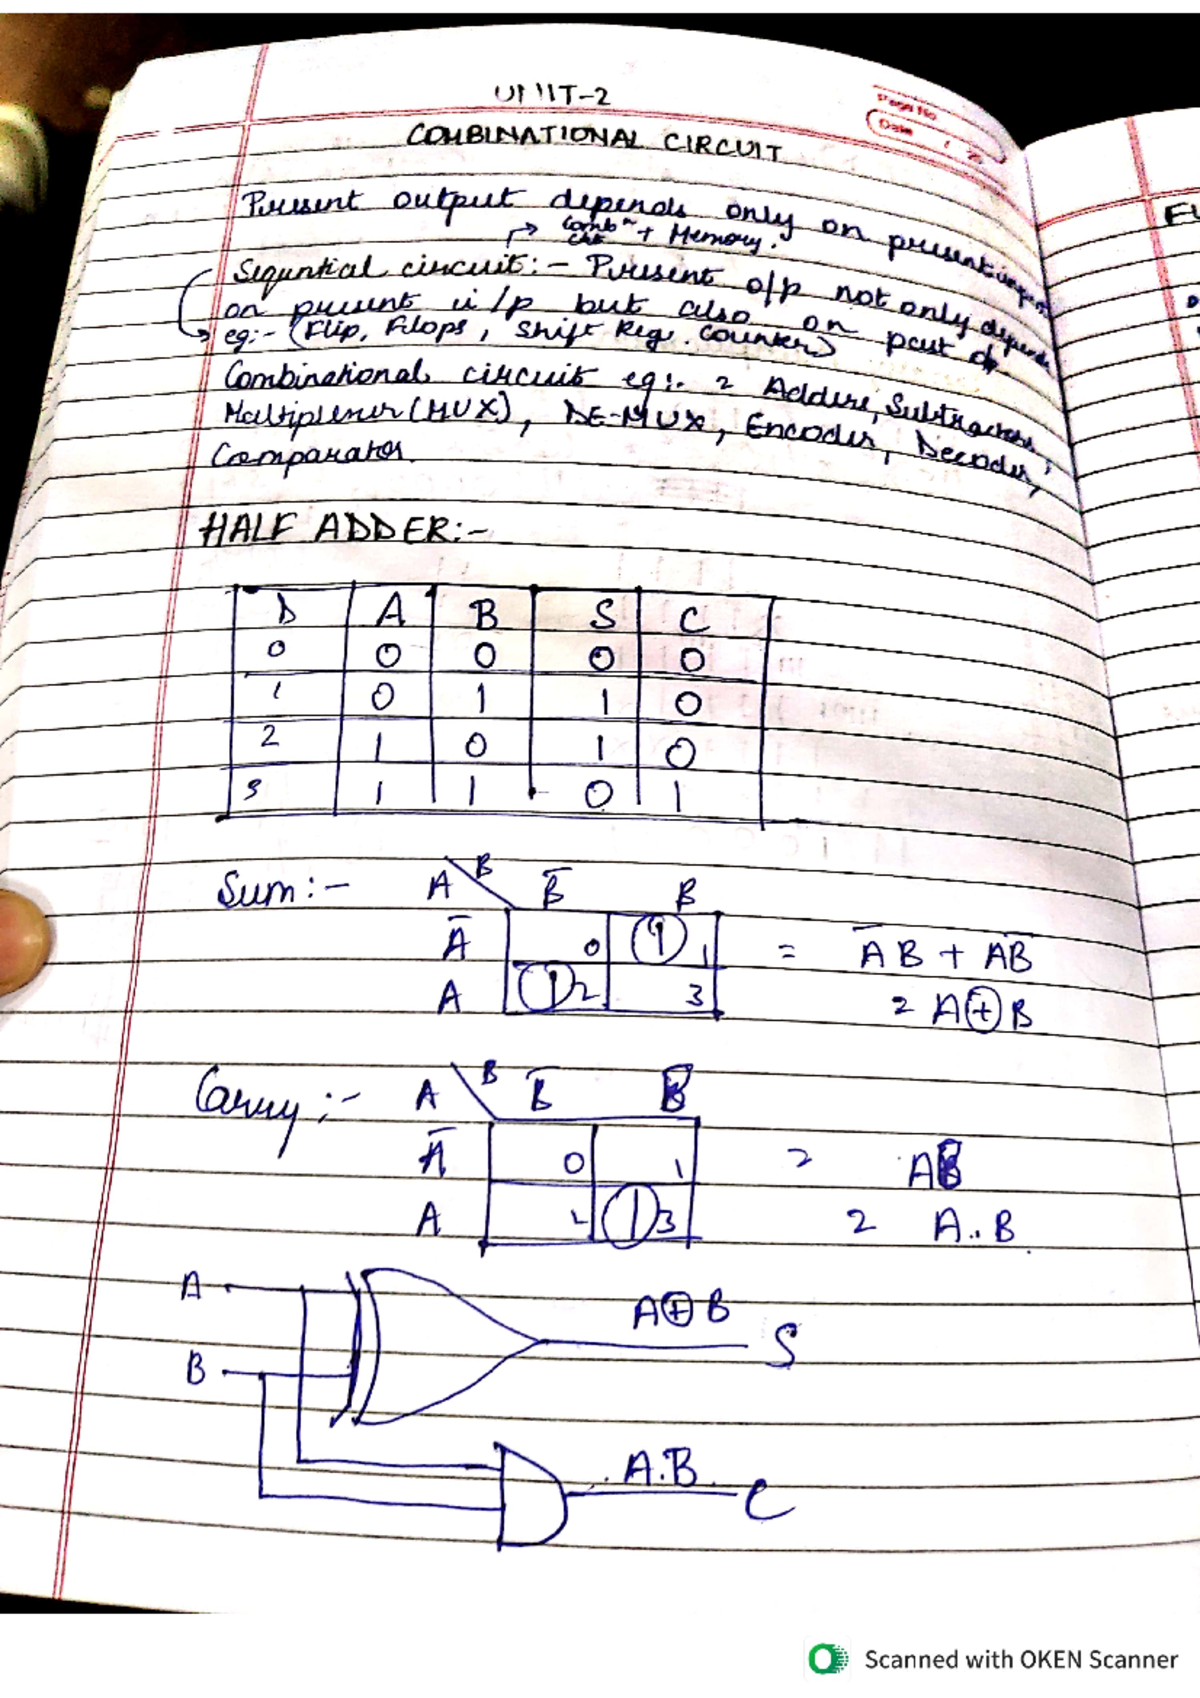 UNIT-2
Page No
Date
COMBINATIONAL CIRCUIT
Present output depends only on present
→ Combⁿ Ckt + Memory.
Sequntial circuit:- Present o/p not only depends
on present i/p but also on past of
eg:- (Flip, Filops, shift Reg. Counter)
Combinational circuit eg:- 2 Adders, Subtractors,
Multiplexer (MUX), DE-MUX, Encoder, Decoder,
Comparator.
HALF ADDER:-
D A B S C
0 0 0 0 0
1 0 1 1 0
2 1 0 1 0
3 1 1 0 1
Sum:- A B B̅ B
A̅ 0 1 1 = A̅B + AB̅
A 1 2 3 = A⊕B
Carry:- A B B̅ B
A̅ 0 1 = AB
A 2 1 3 = A.B
A
A⊕B S
B
A.B C
Scanned with OKEN Scanner